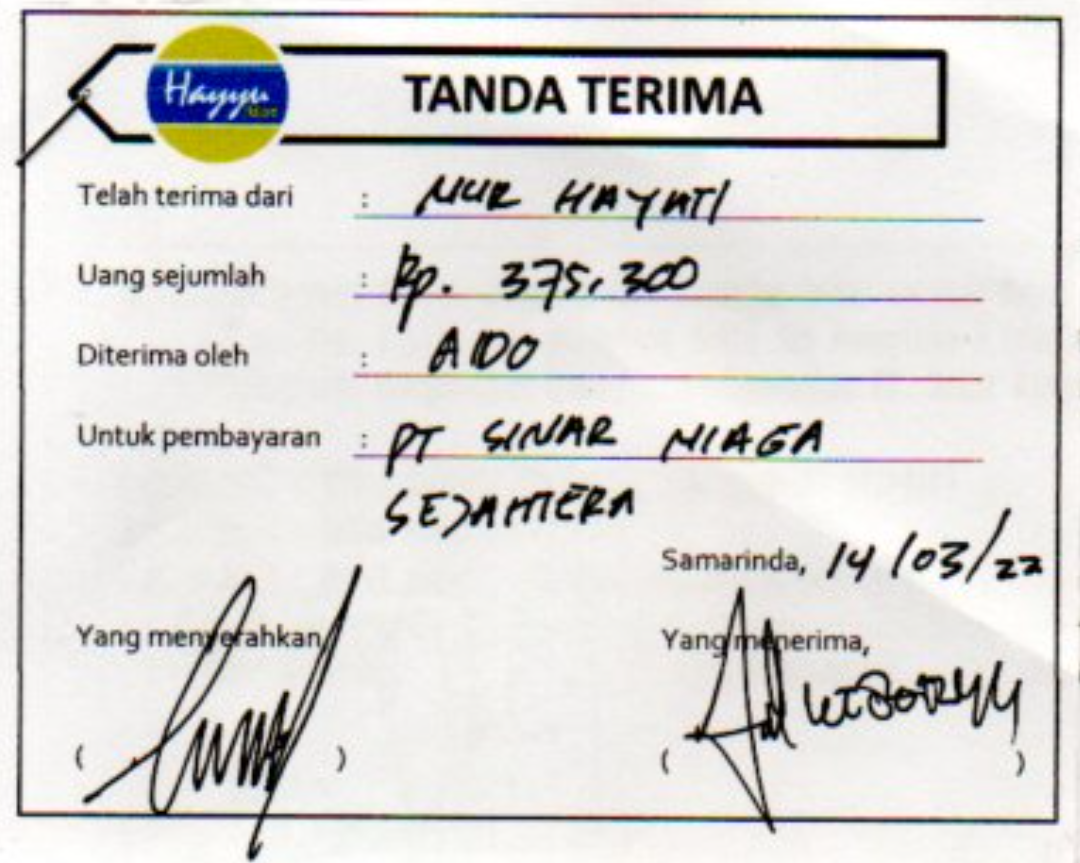 Hayyu
Mart
TANDA TERIMA
Telah terima dari : NUR HAYATI
Uang sejumlah : Rp. 375.300
Diterima oleh : AIDO
Untuk pembayaran : PT SINAR NIAGA
SEJAHTERA
Samarinda, 14/03/22
Yang menyerahkan,
Yang menerima,
( )
( )